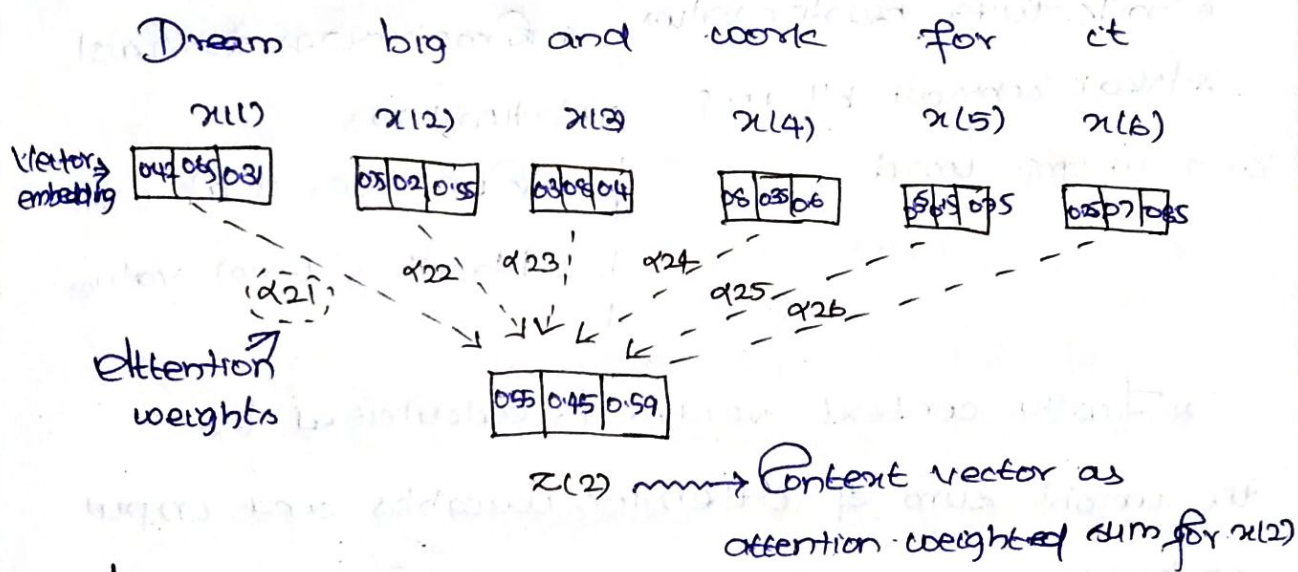 Dream big and work for it
x(1) x(2) x(3) x(4) x(5) x(6)
Vector embedding
0.42 0.65 0.31
0.5 0.2 0.55
0.3 0.8 0.4
0.8 0.35 0.6
0.25 0.7
α21 α22 α23 α24 α25 α26
Attention
weights
0.55 0.45 0.59
z(2) Context vector as
attention weighted sum for x(2)